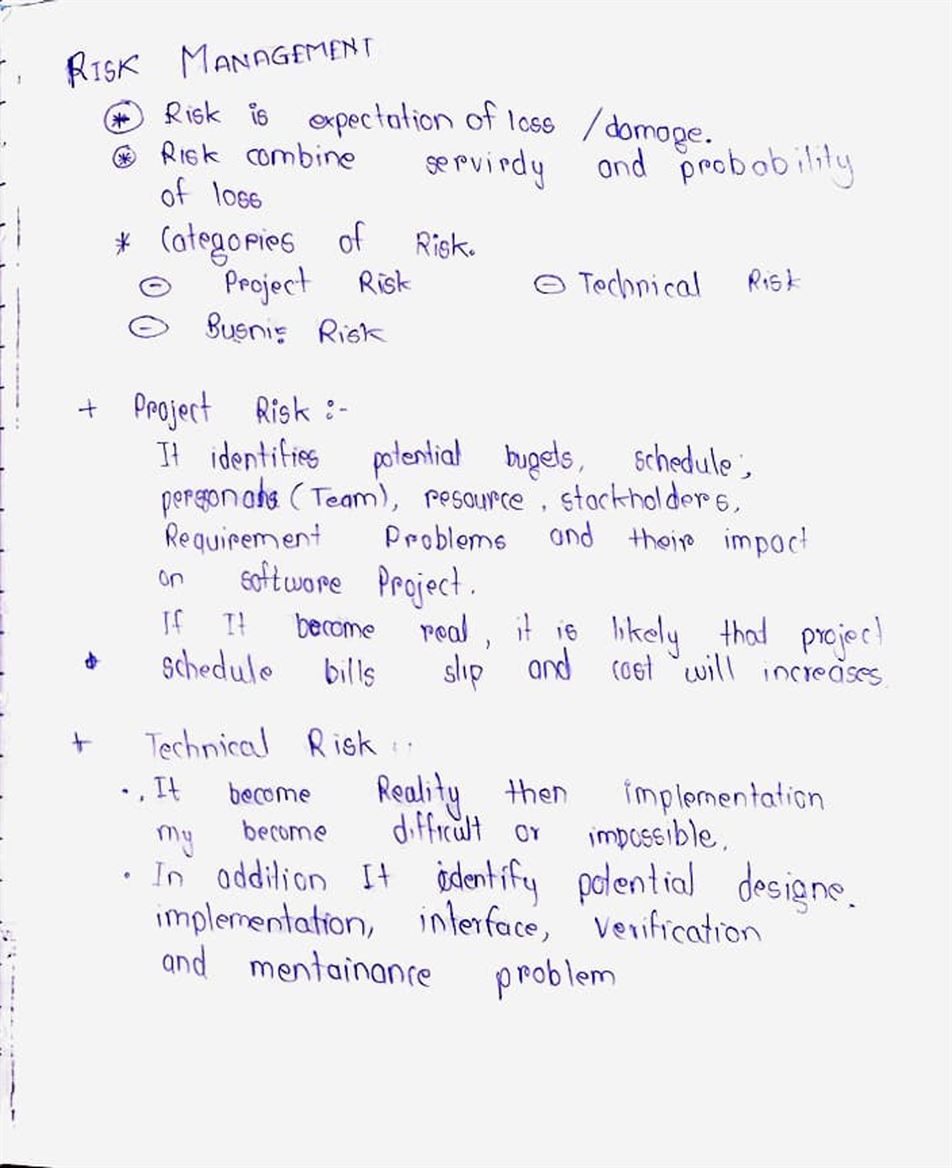 RISK MANAGEMENT
* Risk is expectation of loss /damage.
* Risk combine servirdy and probability
of loss
* Categories of Risk.
- Project Risk - Technical Risk
- Busnis Risk
+ Project Risk :-
It identifies potential bugets, schedule,
(Team), resource, stackholders,
Requirement Problems and their impact
on software Project.
If It become real, it is likely that project
schedule bills slip and cost will increases
+ Technical Risk :
• It become Reality then implementation
my become difficult or impossible.
• In addition It identify potential designe.
implementation, interface, verification
and mentainance problem